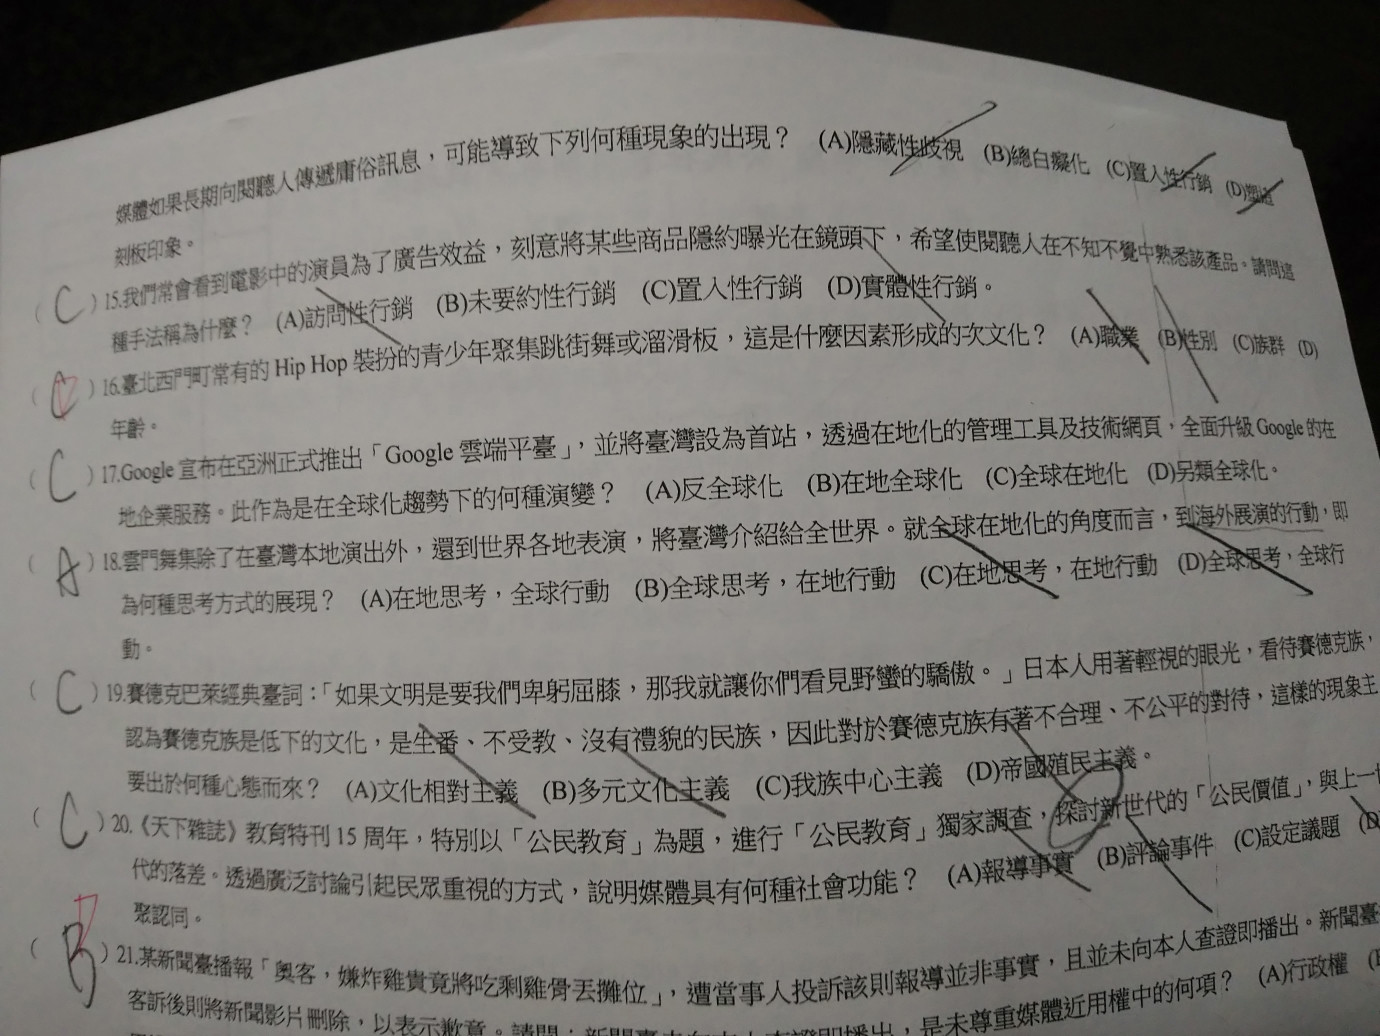 媒體如果長期向閱聽人傳遞庸俗訊息，可能導致下列何種現象的出現？ (A)隱藏性歧視 (B)總白癡化 (C)置入性行銷 (D)塑造
刻板印象。
( C )15.我們常會看到電影中的演員為了廣告效益，刻意將某些商品隱約曝光在鏡頭下，希望使閱聽人在不知不覺中熟悉該產品。請問這
種手法稱為什麼？ (A)訪問性行銷 (B)未要約性行銷 (C)置入性行銷 (D)實體性行銷。
( C )16.臺北西門町常有的 Hip Hop 裝扮的青少年聚集跳街舞或溜滑板，這是什麼因素形成的次文化？ (A)職業 (B)性別 (C)族群 (D)
年齡。
( C )17.Google 宣布在亞洲正式推出「Google 雲端平臺」，並將臺灣設為首站，透過在地化的管理工具及技術網頁，全面升級 Google 的在
地企業服務。此作為是在全球化趨勢下的何種演變？ (A)反全球化 (B)在地全球化 (C)全球在地化 (D)另類全球化。
( A )18.雲門舞集除了在臺灣本地演出外，還到世界各地表演，將臺灣介紹給全世界。就全球在地化的角度而言，到海外展演的行動，即
為何種思考方式的展現？ (A)在地思考，全球行動 (B)全球思考，在地行動 (C)在地思考，在地行動 (D)全球思考，全球行
動。
( C )19.賽德克巴萊經典臺詞：「如果文明是要我們卑躬屈膝，那我就讓你們看見野蠻的驕傲。」日本人用著輕視的眼光，看待賽德克族，
認為賽德克族是低下的文化，是生番、不受教、沒有禮貌的民族，因此對於賽德克族有著不合理、不公平的對待，這樣的現象主
要出於何種心態而來？ (A)文化相對主義 (B)多元文化主義 (C)我族中心主義 (D)帝國殖民主義。
( C )20.《天下雜誌》教育特刊 15 周年，特別以「公民教育」為題，進行「公民教育」獨家調查，探討新世代的「公民價值」，與上一
代的落差。透過廣泛討論引起民眾重視的方式，說明媒體具有何種社會功能？ (A)報導事實 (B)評論事件 (C)設定議題 (D)
聚認同。
( B )21.某新聞臺播報「奧客，嫌炸雞貴竟將吃剩雞骨丟攤位」，遭當事人投訴該則報導並非事實，且並未向本人查證即播出。新聞臺
客訴後則將新聞影片刪除，以表示歉意。請問：新聞臺未向本人查證即播出，是未尊重媒體近用權中的何項？ (A)行政權